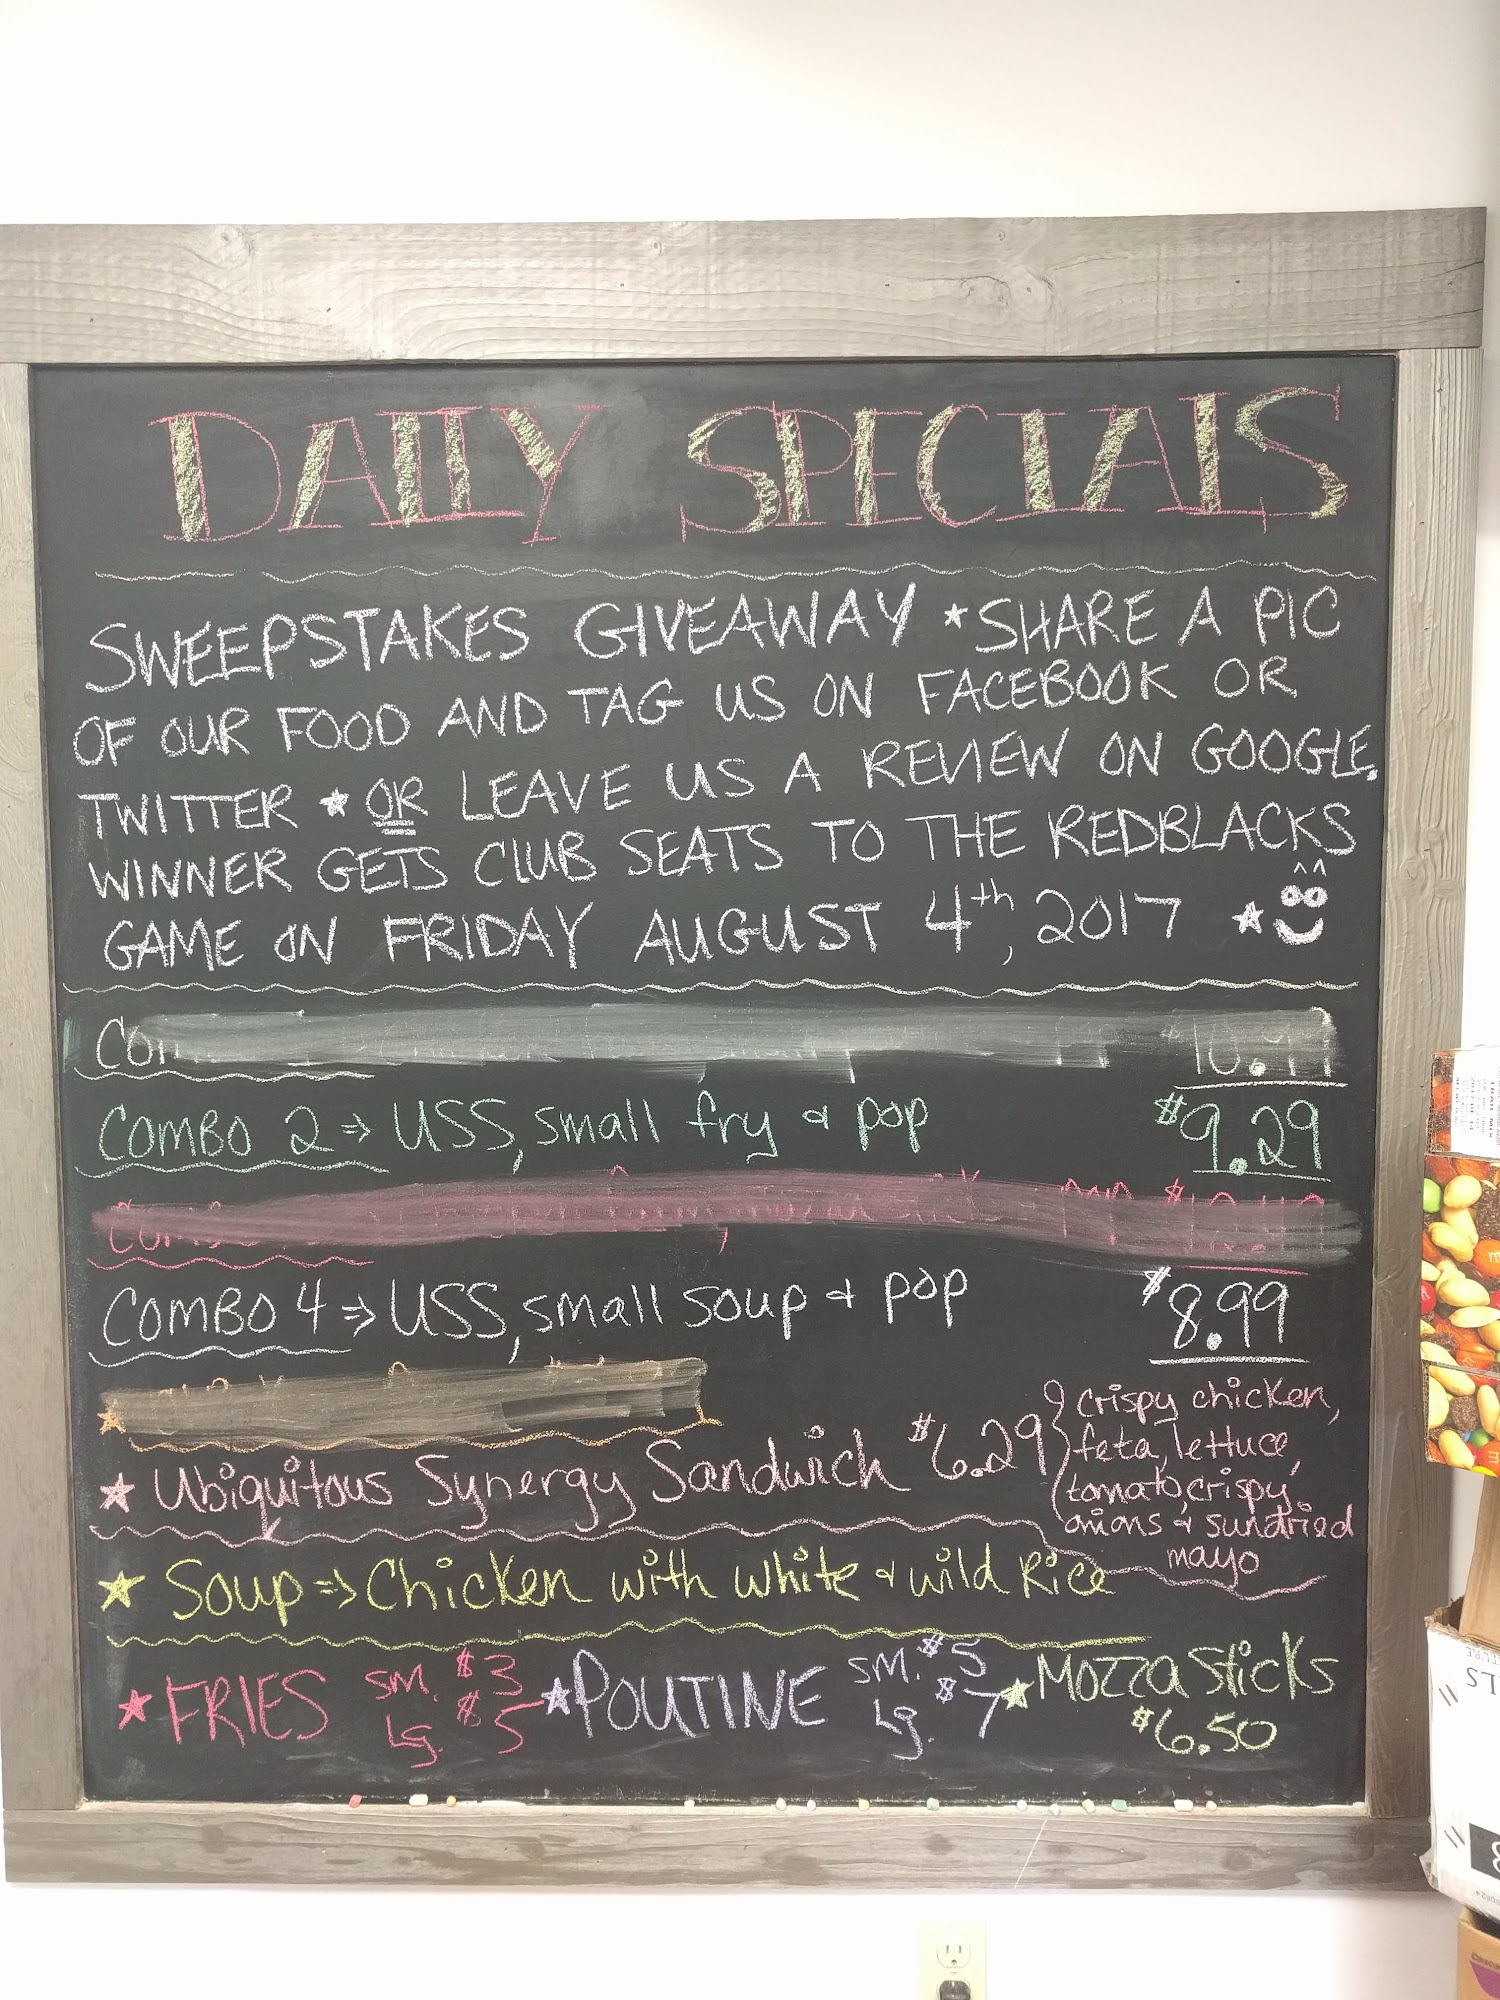 DAILY SPECIALS
SWEEPSTAKES GIVEAWAY ★ SHARE A PIC
OF OUR FOOD AND TAG US ON FACEBOOK OR
TWITTER ★ OR LEAVE US A REVIEW ON GOOGLE.
WINNER GETS CLUB SEATS TO THE REDBLACKS
GAME ON FRIDAY AUGUST 4th, 2017 ★
COMBO 2 => USS, small fry & pop $9.29
COMBO 4 => USS, small soup & pop $8.99
★ Ubiquitous Synergy Sandwich $6.29
crispy chicken,
feta, lettuce,
tomato, crispy
onions & sundried
mayo
★ Soup => Chicken with white & wild Rice
★ FRIES SM. $3
Lg. $5
★ POUTINE SM. $5
Lg. $7
★ MOZZA Sticks
$6.50